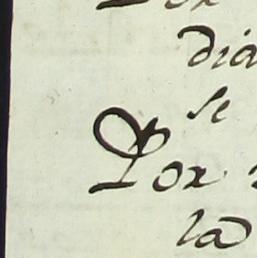 dia
se
Por
la